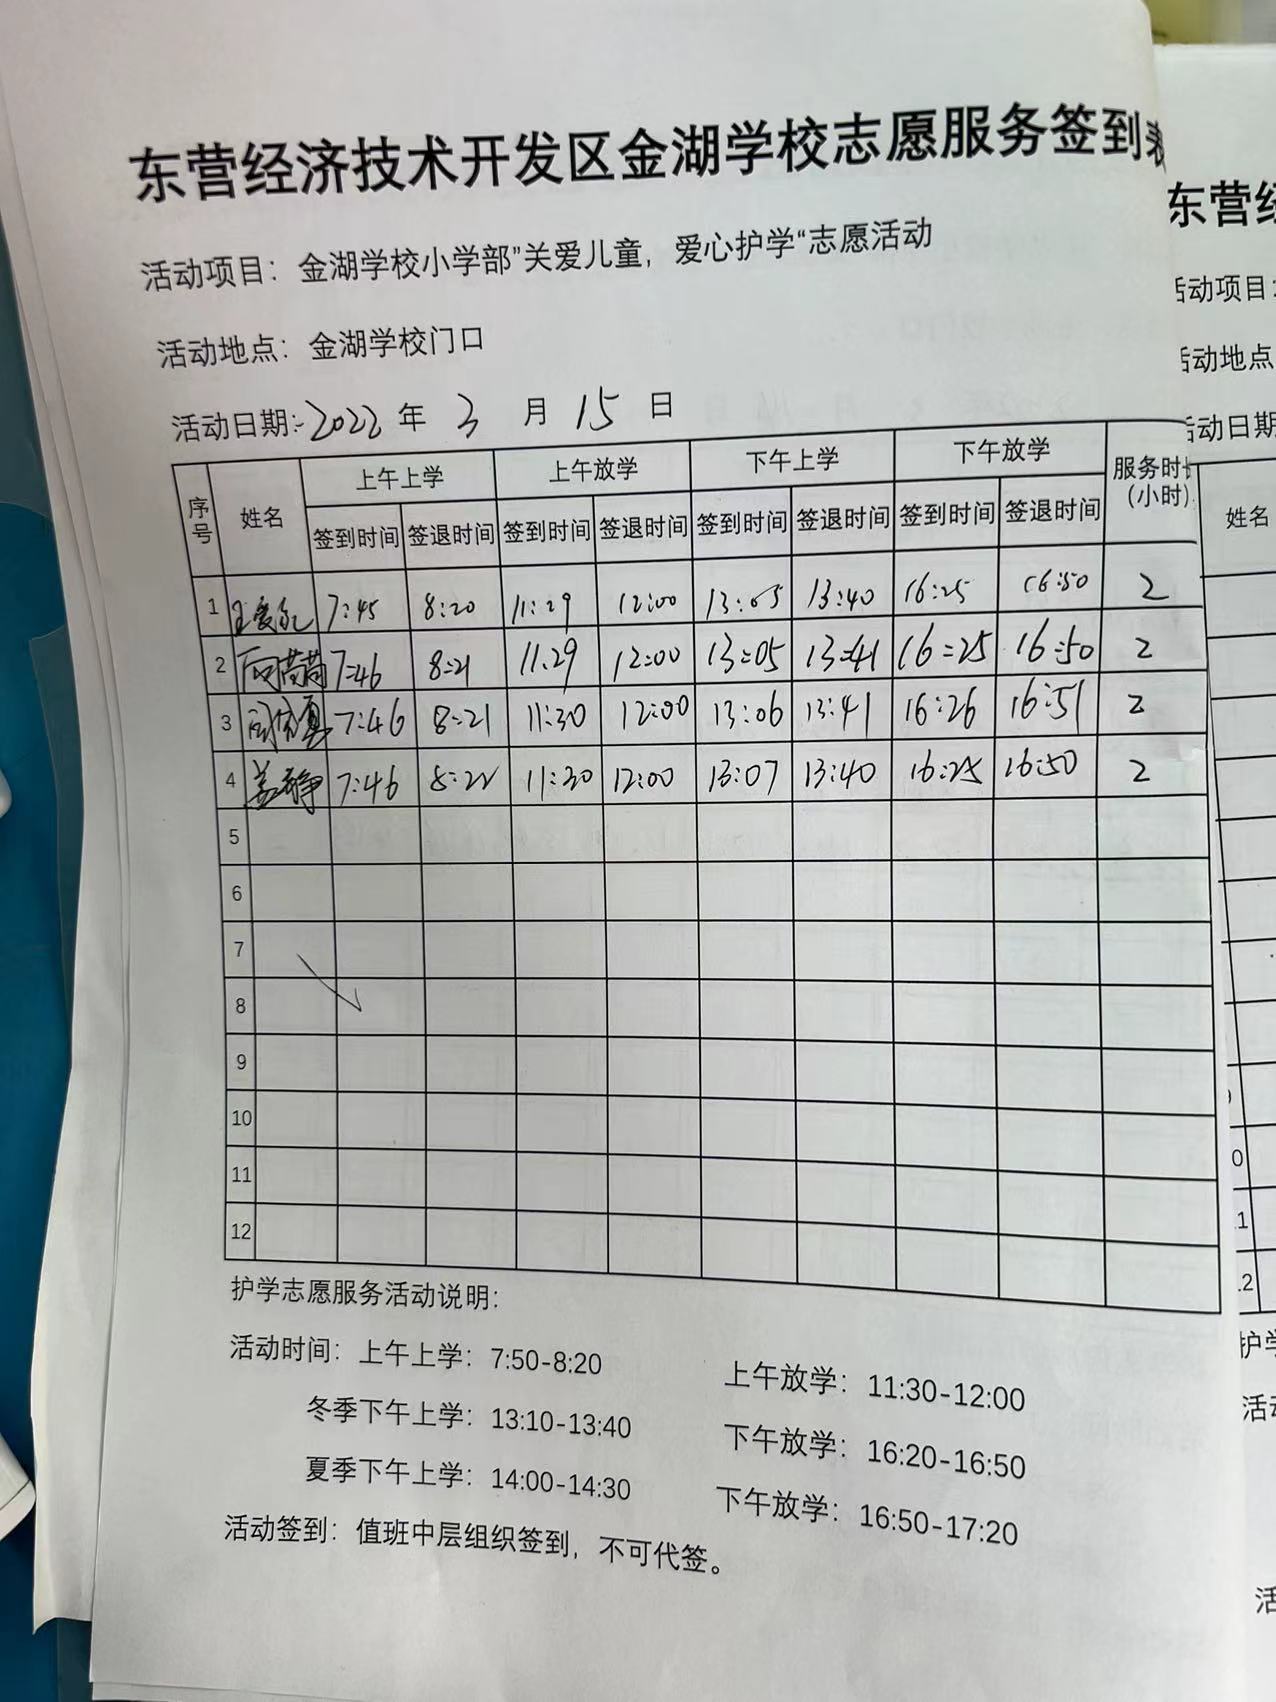 东营经济技术开发区金湖学校志愿服务签到表
活动项目：金湖学校小学部”关爱儿童，爱心护学“志愿活动
活动地点：金湖学校门口
活动日期：2022 年 3 月 15 日
序号 姓名 上午上学 上午放学 下午上学 下午放学 服务时长（小时）
签到时间 签退时间 签到时间 签退时间 签到时间 签退时间 签到时间 签退时间
1 7:45 8:20 11:29 12:00 13:05 13:40 16:25 16:50 2
2 7:46 8:21 11:29 12:00 13:05 13:41 16:25 16:50 2
3 7:46 8:21 11:30 12:00 13:06 13:41 16:26 16:51 2
4 盖静 7:46 8:22 11:30 12:00 13:07 13:40 16:25 16:50 2
5
6
7
8
9
10
11
12
护学志愿服务活动说明：
活动时间：上午上学：7:50-8:20 上午放学：11:30-12:00
冬季下午上学：13:10-13:40 下午放学：16:20-16:50
夏季下午上学：14:00-14:30 下午放学：16:50-17:20
活动签到：值班中层组织签到，不可代签。
东营经
活动项目：
活动地点
活动日期
姓名
护学
活动